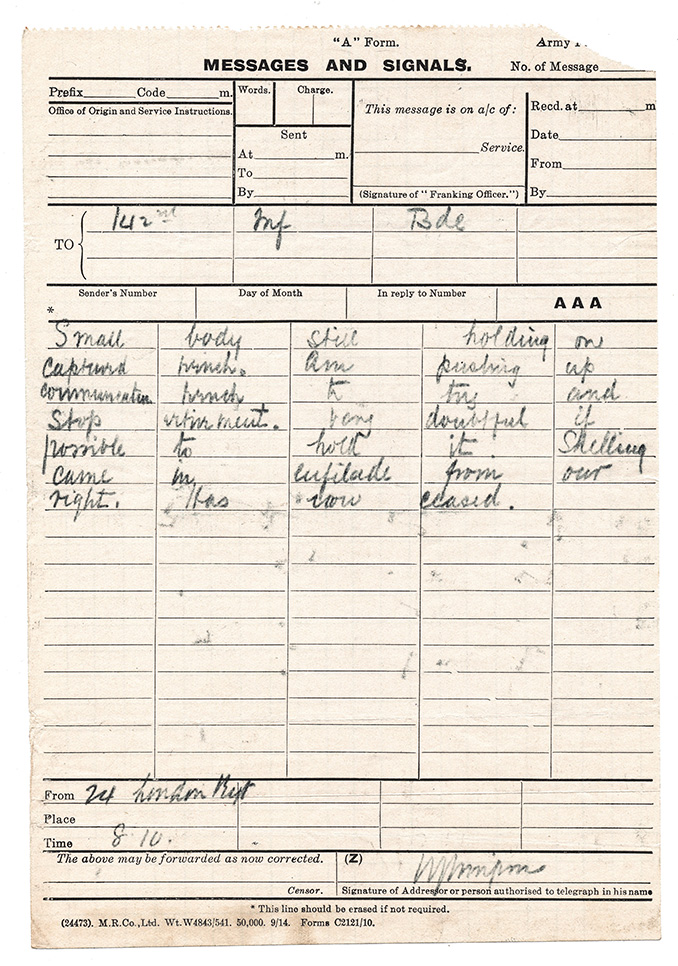 "A" Form.
Army
MESSAGES AND SIGNALS.
No. of Message
Prefix Code m.
Words. Charge.
This message is on a/c of:
Recd. at m
Office of Origin and Service Instructions.
Sent
Date
At m.
Service.
To
From
By
(Signature of "Franking Officer.")
By
TO 142nd Inf Bde
Sender's Number Day of Month In reply to Number AAA
*
Small body still holding on
captured trench. Am pushing up
communication trench to try and
Stop retirement. Very doubtful if
possible to hold it. Shelling
came in enfilade from our
right. Has now ceased.
From 24 London Regt
Place
Time 8 10.
The above may be forwarded as now corrected.
(Z)
Censor.
Signature of Addressor or person authorised to telegraph in his name
* This line should be erased if not required.
(24473). M.R.Co.,Ltd. Wt.W4843/541. 50,000. 9/14. Forms C2121/10.